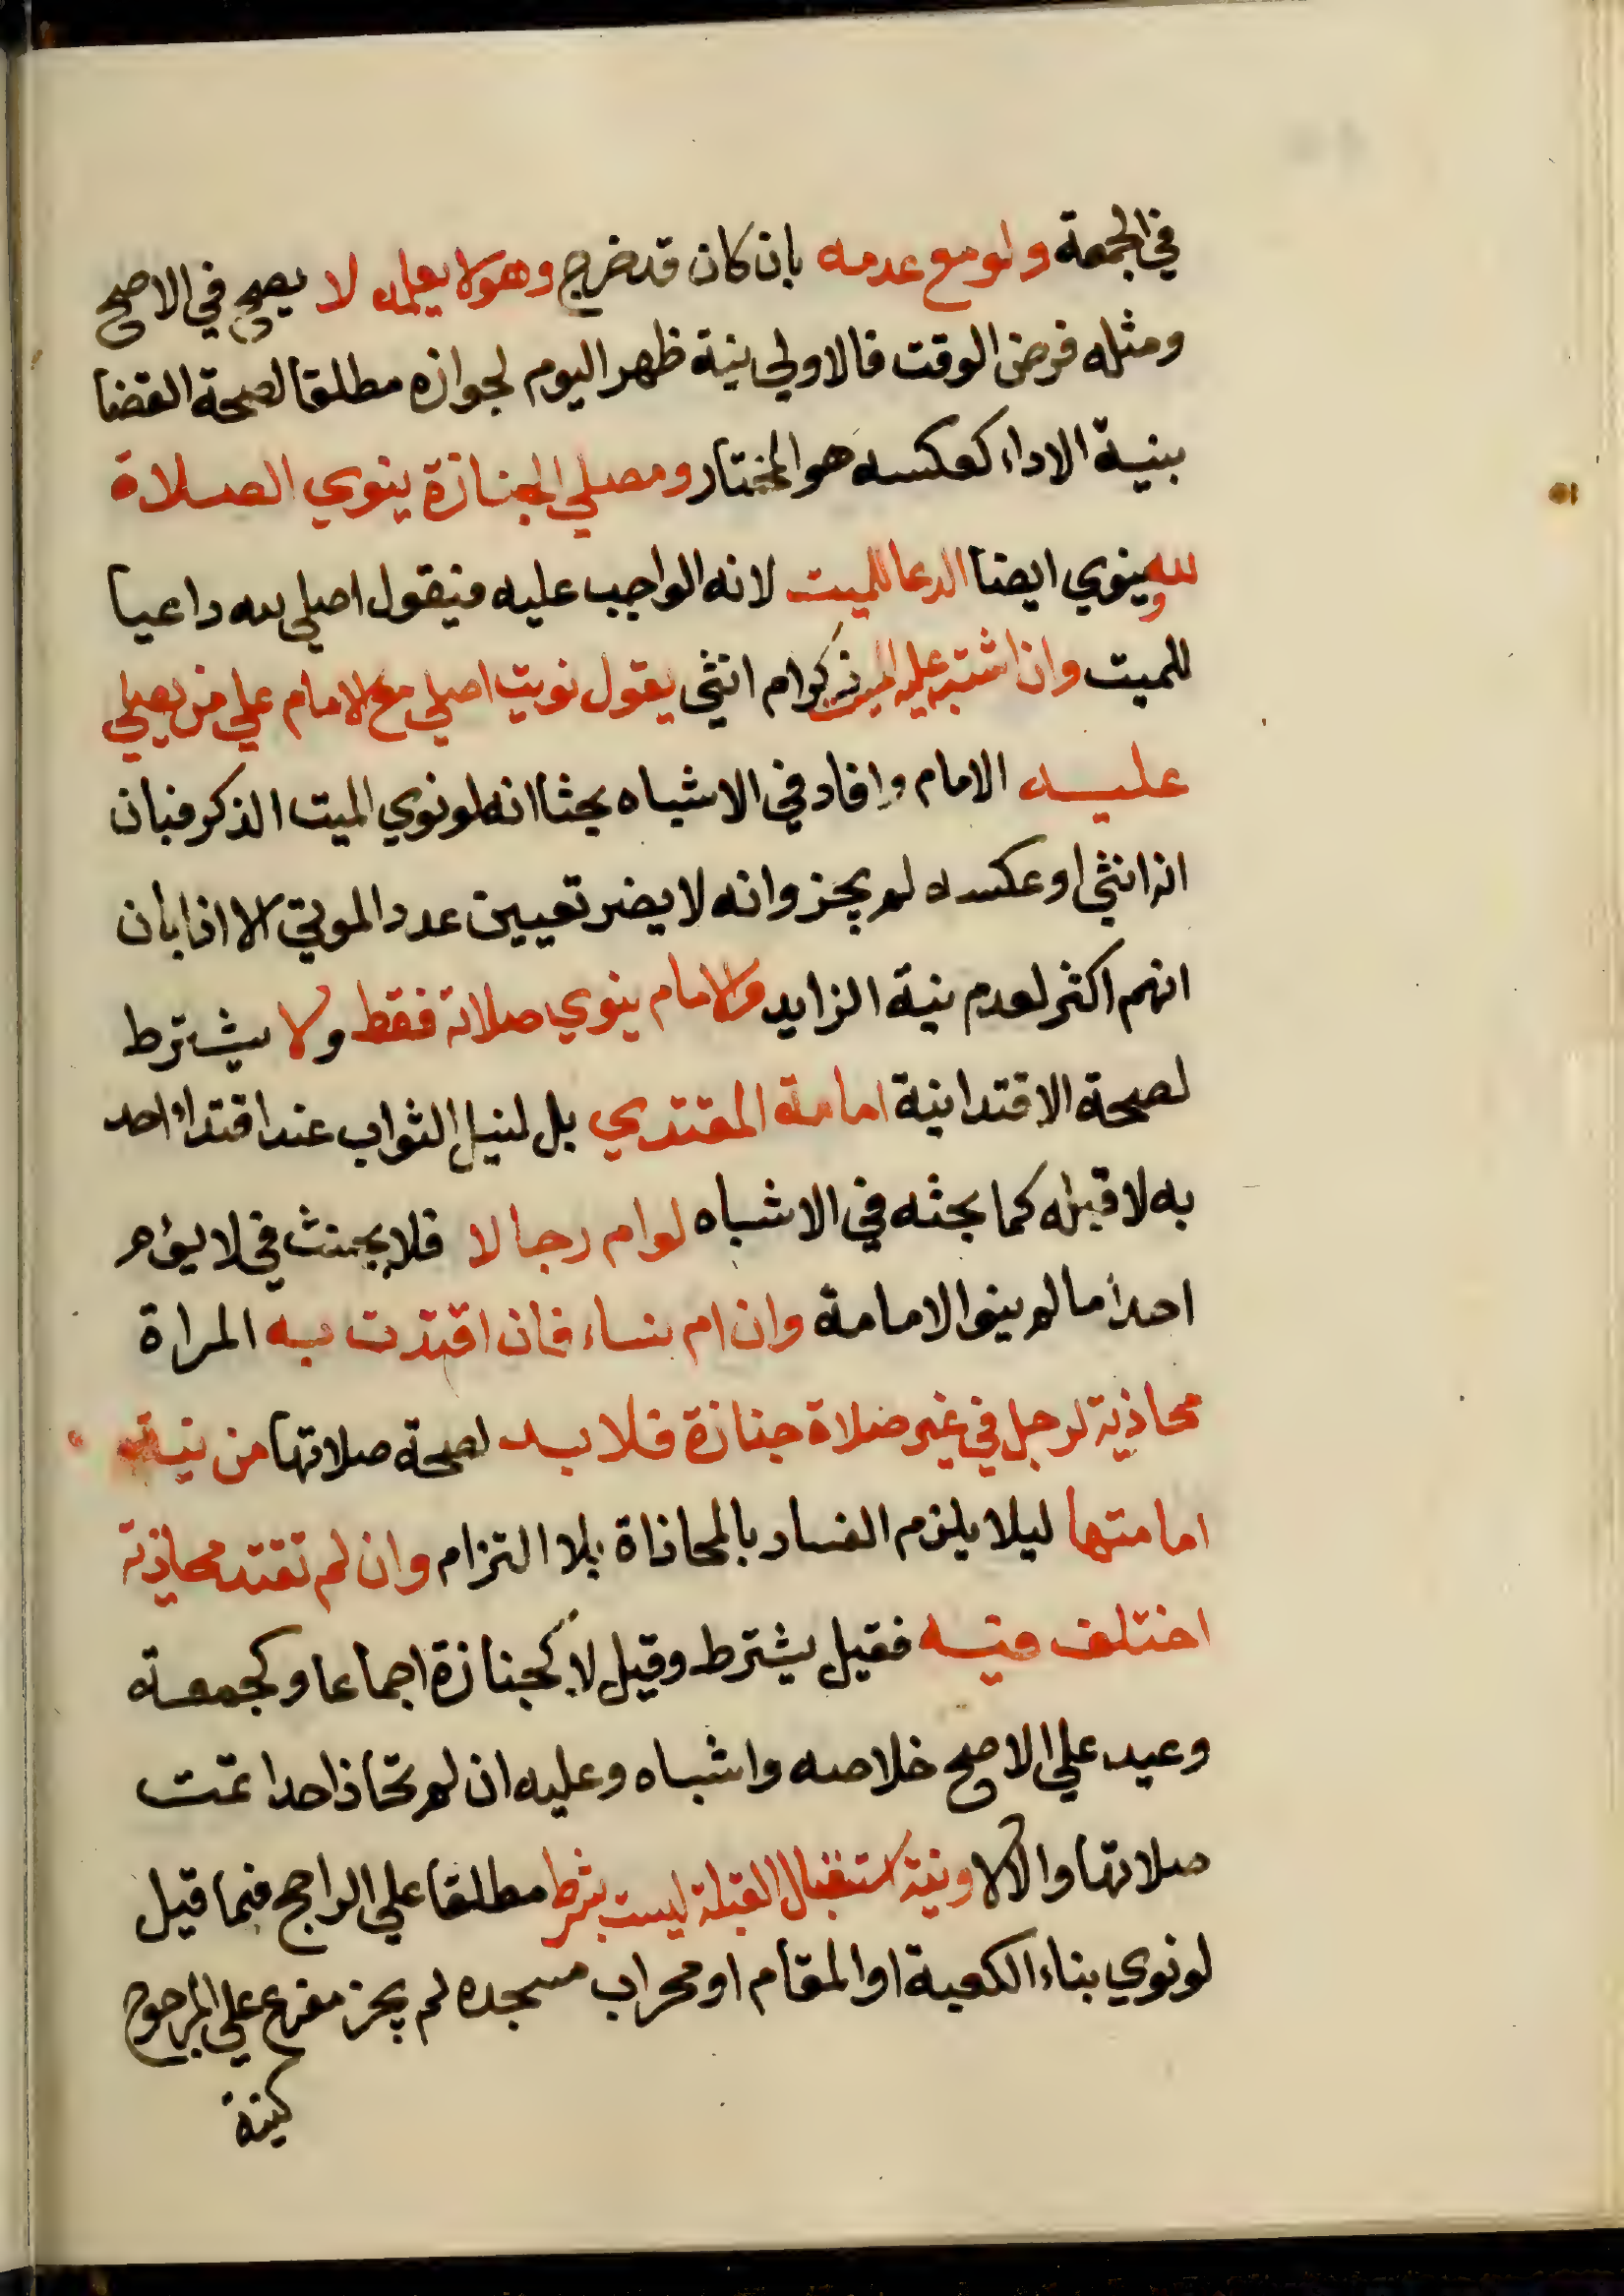 في الجمعة ولو مع عدمه بان كان قد خرج وهو لا يعلمه لا يصح في الاصح
ومثله فرض الوقت فالاولي نية ظهر اليوم لجوازه مطلقا لصحة القضا
بنية الاداء كعكسه هو المختار ومصلي الجنازة ينوي الصلاة
لله وينوي ايضا الدعا للميت لانه الواجب عليه فيقول اصلي لله داعيا
للميت وان اشتبه عليه الميت ذكر ام انثي يقول نويت اصلي مع الامام علي من يصلي
عليه الامام وافاد في الاشباه بحثا انه لو نوي الميت الذكر فبان
انه انثي او عكسه لم يجز وانه لا يضر تعيين عدد الموتي الا اذا بان
انهم اكثر لعدم نية الزايد والامام ينوي صلاته فقط ولا يشترط
لصحة الاقتدا نية امامة المقتدي بل لنيل الثواب عند اقتداء احد
به لا قبله كما بحثه في الاشباه لو ام رجالا فلا يحنث في لا يؤم
احدا ما لم ينو الامامة وان ام نساء فان اقتدت به المراة
محاذية لرجل في غير صلاة جنازة فلا بد لصحة صلاتها من نية
امامتها ليلا يلزم الفساد بالمحاذاة بلا التزام وان لم تقتد محاذية
اختلف فيه فقيل يشترط وقيل لا كجنازة اجماعا وكجمعة
وعيد علي الاصح خلاصه واشباه وعليه ان لم تحاذ احدا تمت
صلاتها والا لا ونية استقبال القبلة ليست بشرط مطلقا علي الراجح فما قيل
لو نوي بناء الكعبة او المقام او محراب مسجده لم يجز مفرع علي المرجوح
كنية